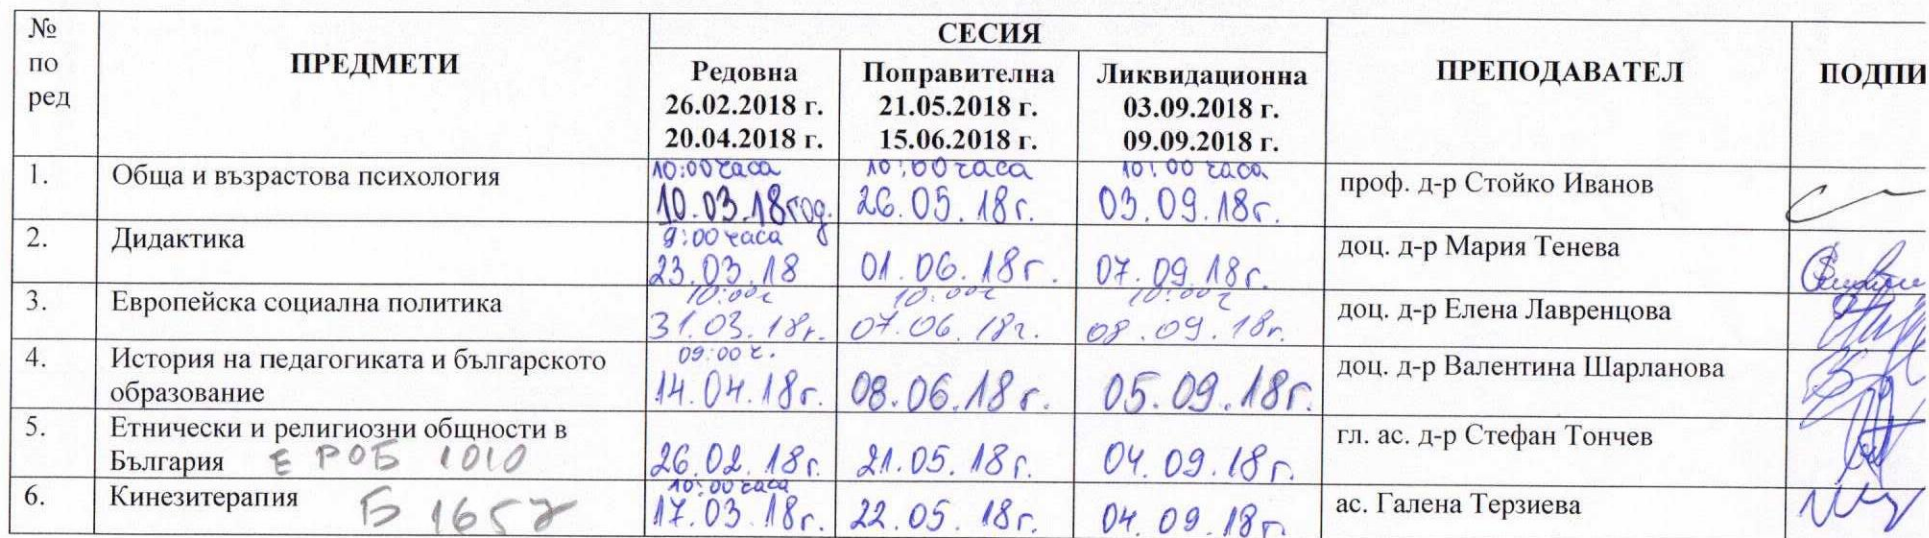 № по ред
ПРЕДМЕТИ
СЕСИЯ
ПРЕПОДАВАТЕЛ
ПОДПИ
Редовна
26.02.2018 г.
20.04.2018 г.
Поправителна
21.05.2018 г.
15.06.2018 г.
Ликвидационна
03.09.2018 г.
09.09.2018 г.
1.
Обща и възрастова психология
10:00 часа
10.03.18 год.
10:00 часа
26.05.18 г.
10:00 часа
03.09.18 г.
проф. д-р Стойко Иванов
2.
Дидактика
9:00 часа
23.03.18
01.06.18 г.
07.09.18 г.
доц. д-р Мария Тенева
3.
Европейска социална политика
10:00 ч
31.03.18 г.
10:00 ч
07.06.18 г.
10:00 ч
08.09.18 г.
доц. д-р Елена Лавренцова
4.
История на педагогиката и българското
образование
09:00 ч.
14.04.18 г.
08.06.18 г.
05.09.18 г.
доц. д-р Валентина Шарланова
5.
Етнически и религиозни общности в
България ЕРОБ 1010
26.02.18 г.
21.05.18 г.
04.09.18 г.
гл. ас. д-р Стефан Тончев
6.
Кинезитерапия Б 1657
10:00 часа
17.03.18 г.
22.05.18 г.
04.09.18 г.
ас. Галена Терзиева